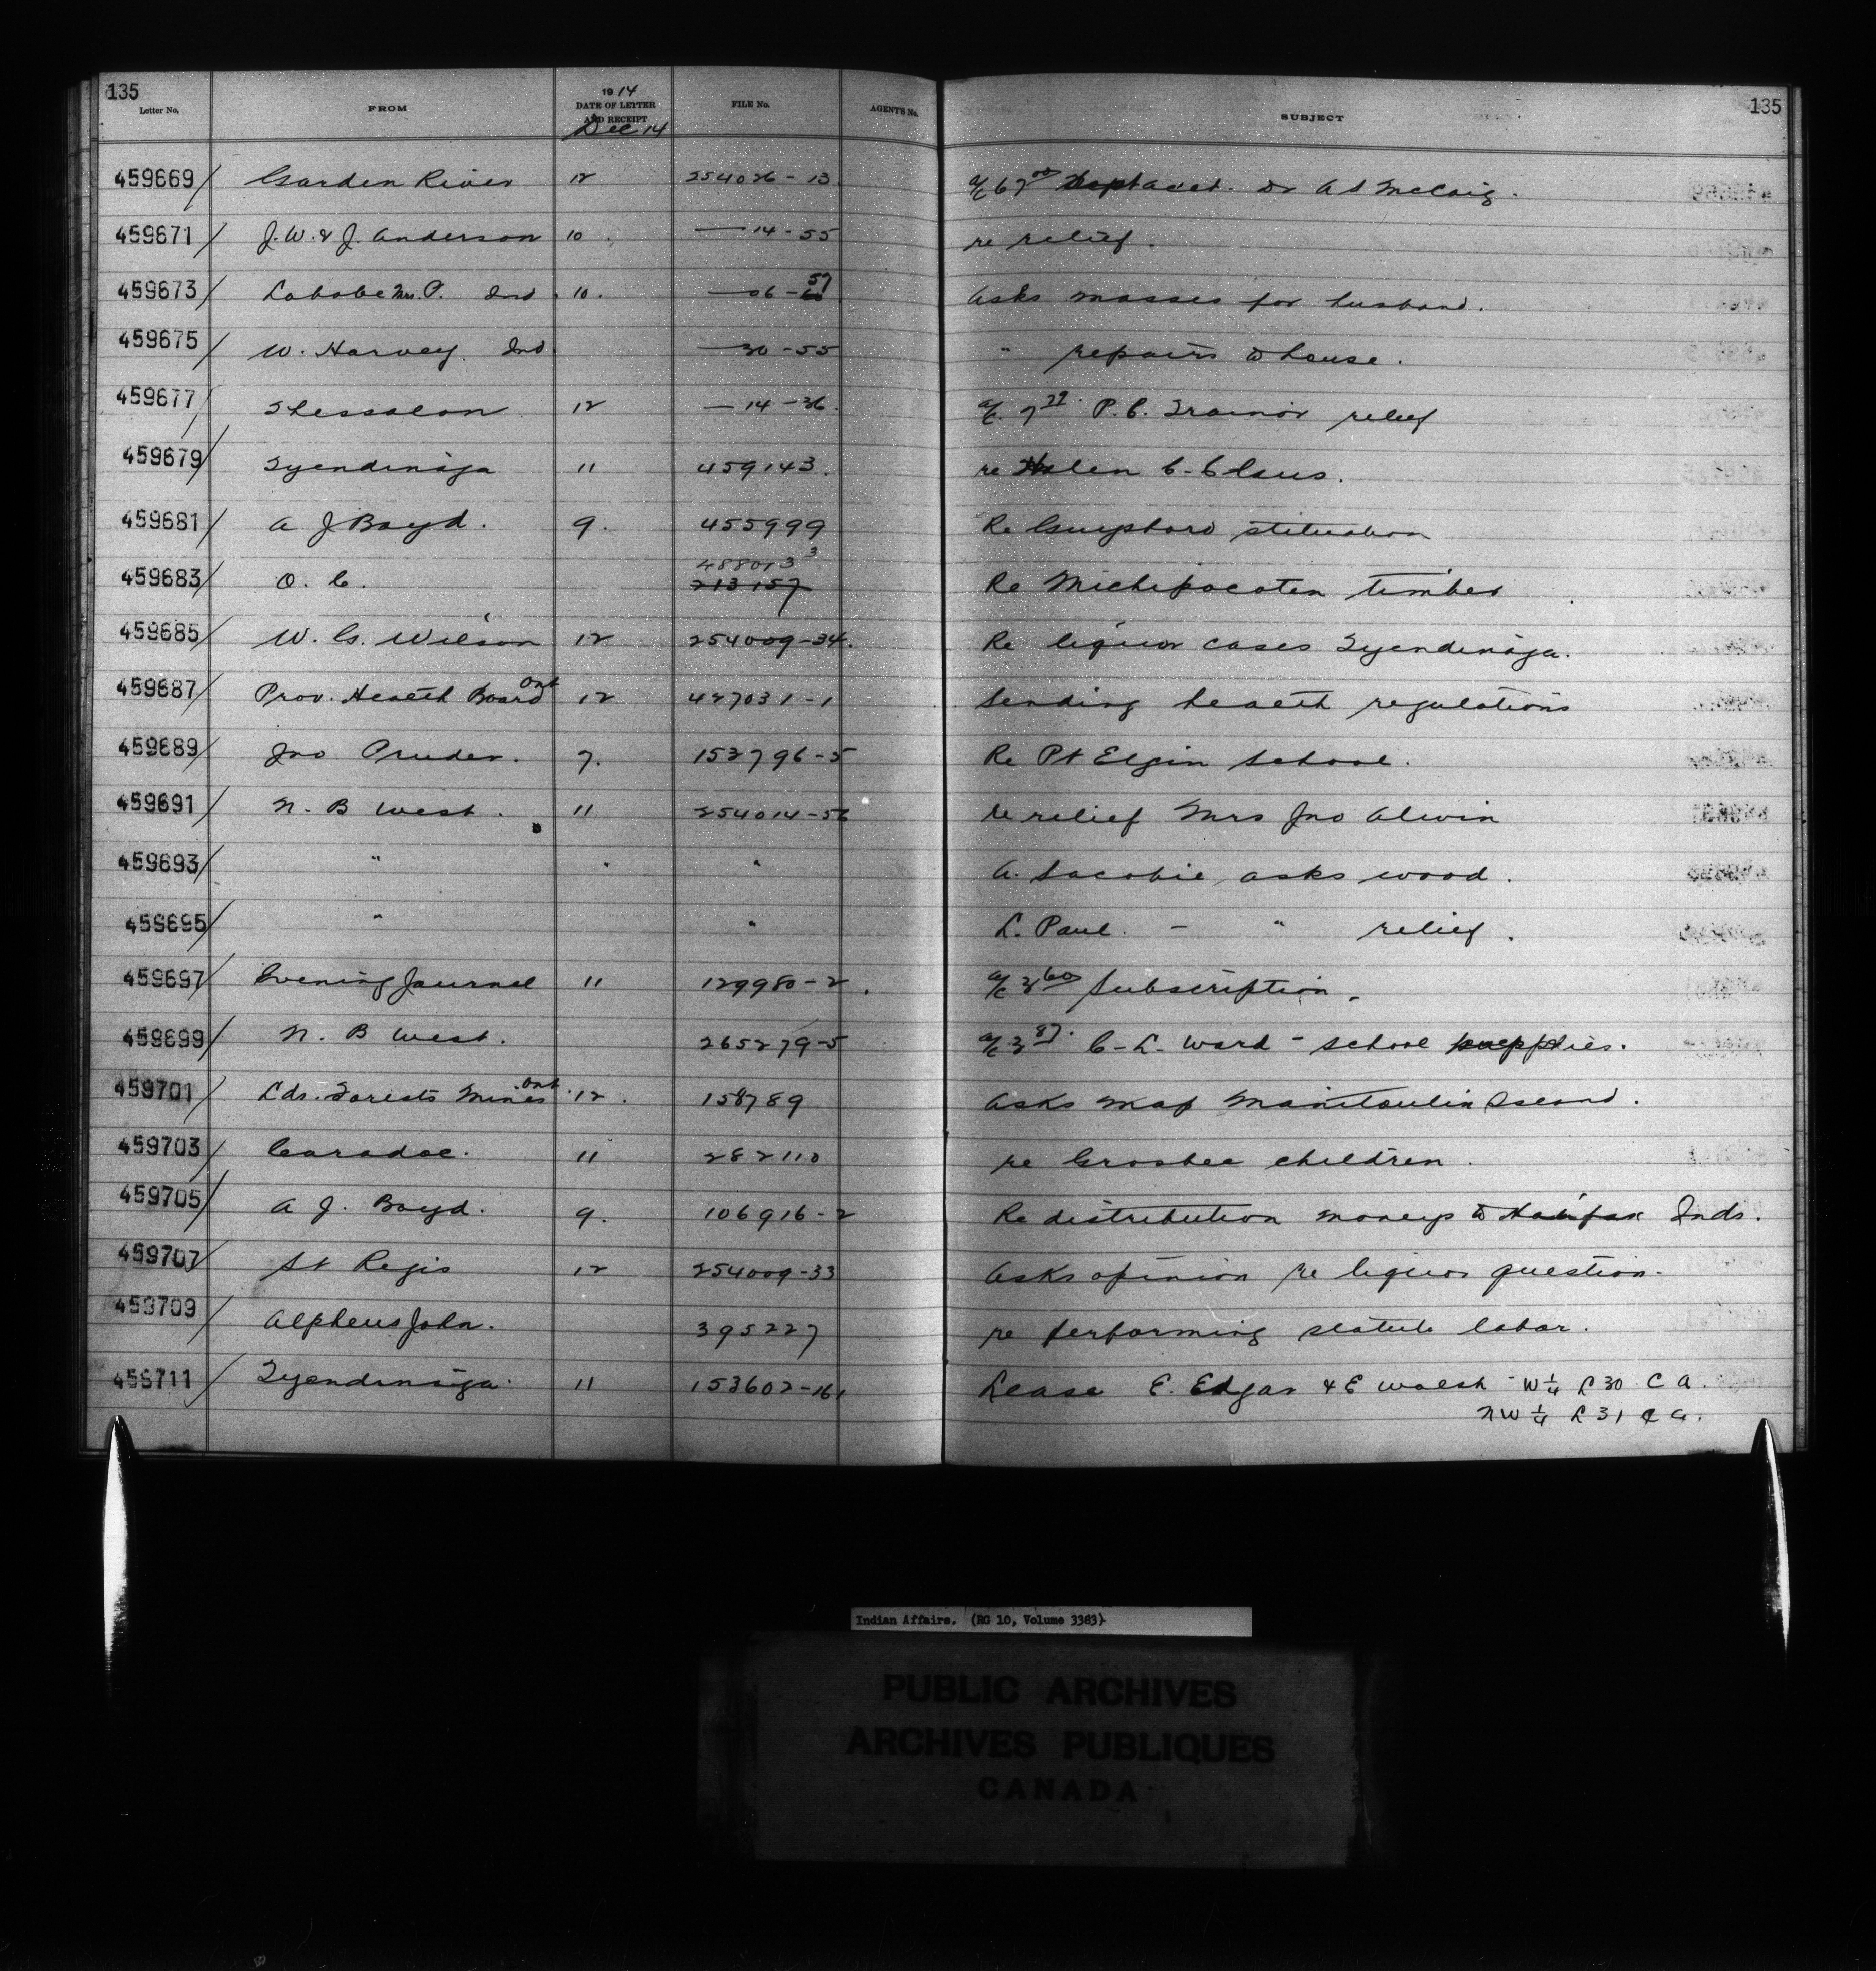 135 135
Letter No. FROM 1914 DATE OF LETTER AND RECEIPT FILE No. AGENT'S No. SUBJECT
Dec 14
459669 Garden River 12 254026-13 a/c 67.00 acct. Dr A S McCaig.
459671 J. W. & J. Anderson 10. — 14-55 re relief.
459673 Labobe Mrs. P. Ind. 10. — 06-57 Asks masses for husband.
459675 W. Harvey. Ind — 30-55 " repairs to house.
459677 Thessalon 12 — 14-36. a/c. P. C. Trainor relief
459679 Tyendinaga 11 459143. re Helen C. Claus.
459681 A J Boyd. 9. 455999 Re Guysboro
459683 O. C. 488013 3 213157 Re Michipocoten timber
459685 W. G. Wilson 12 254009-34. Re liquor cases Tyendinaga.
459687 Prov. Health Board Ont 12 427031-1 Sending health regulations
459689 Jno Pruder. 7. 152796-5 Re Pt Elgin School.
459691 N. B West. 11 254014-56 re relief Mrs Jno Alwin
459693 " " " A. Sacobie asks wood.
459695 " " L. Paul - " relief.
459697 Evening Journal 11 129980-2. a/c 3.60 Subscription.
459699 N. B West. 265279-5 a/c 3.87. C. L. Ward - school supplies.
459701 Lds. Forests Mines Ont. 12. 158789 Asks map Manitoulin Island.
459703 Caradoc. 11 282110 re Grosbee children.
459705 A J. Boyd. 9. 106916-2 Re distribution moneys to Halifax Inds.
459707 St Regis 12 254009-33 Asks opinion re liquor question.
459709 Alpheus John. 395227 re performing statute labor.
459711 Tyendinaga. 11 153602-161 Lease E. Edgar & E Walsh - W¼ L 30 C A.
NW ¼ L 31 C A.
Indian Affairs. (RG 10, Volume 3383)
PUBLIC ARCHIVES
ARCHIVES PUBLIQUES
CANADA